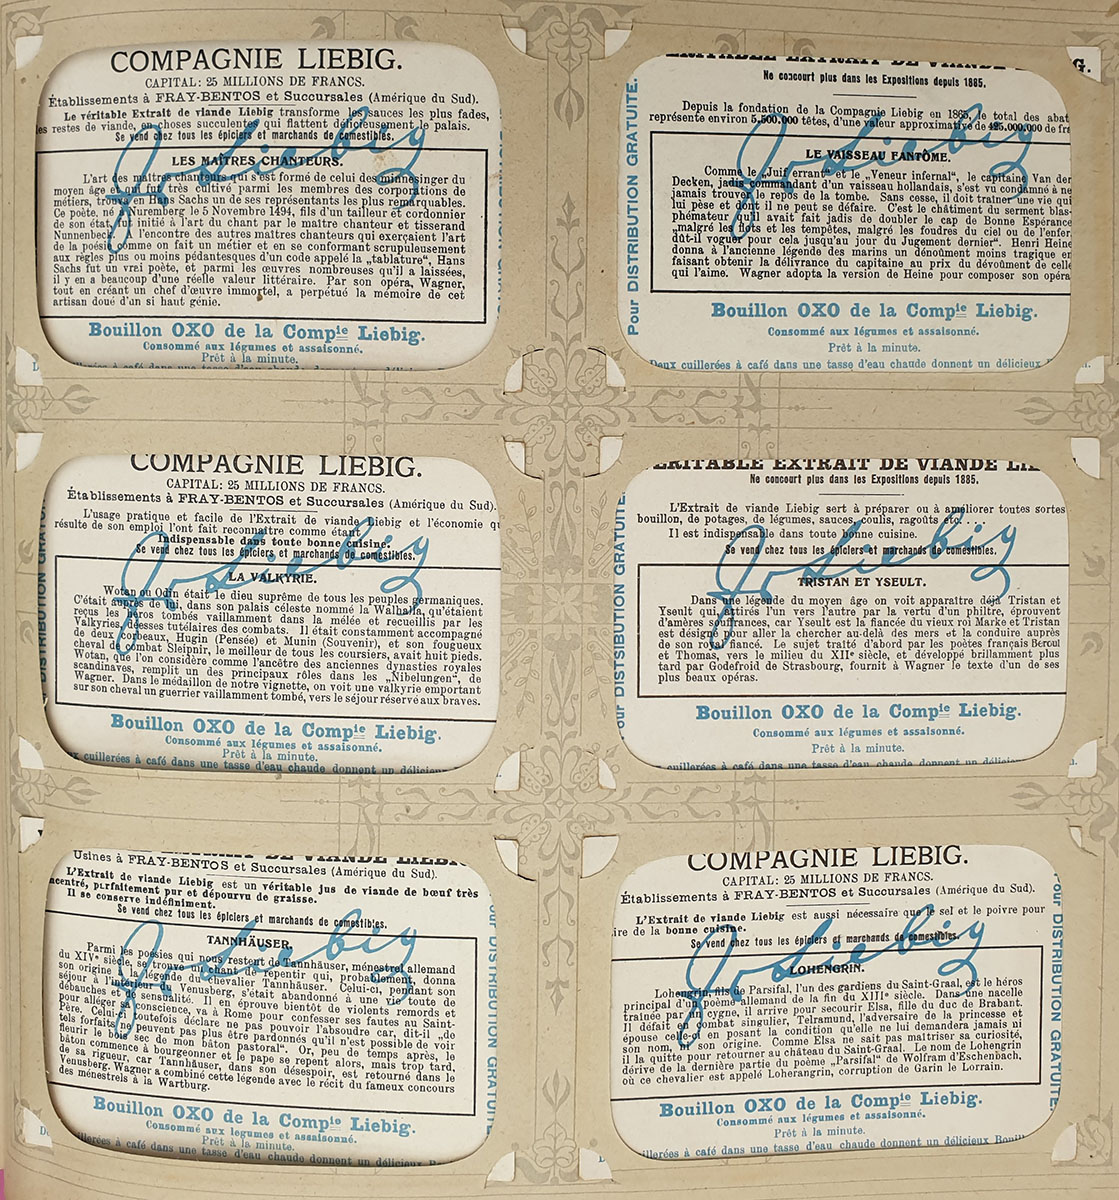 COMPAGNIE LIEBIG.
CAPITAL: 25 MILLIONS DE FRANCS.
Établissements à FRAY-BENTOS et Succursales (Amérique du Sud).
Le véritable Extrait de viande Liebig transforme les sauces les plus fades,
les restes de viande, en choses succulentes qui flattent délicieusement le palais.
Se vend chez tous les épiciers et marchands de comestibles.
LES MAÎTRES CHANTEURS.
L'art des maîtres chanteurs qui s'est formé de celui des minnesinger du
moyen âge et qui fut très cultivé parmi les membres des corporations de
métiers, trouve en Hans Sachs un de ses représentants les plus remarquables.
Ce poète, né à Nuremberg le 5 Novembre 1494, fils d'un tailleur et cordonnier
de son état, fut initié à l'art du chant par le maître chanteur et tisserand
Nunnenbeck. A l'encontre des autres maîtres chanteurs qui exerçaient l'art
de la poésie comme on fait un métier et en se conformant scrupuleusement
aux règles plus ou moins pédantesques d'un code appelé la „tablature", Hans
Sachs fut un vrai poète, et parmi les œuvres nombreuses qu'il a laissées,
il y en a beaucoup d'une réelle valeur littéraire. Par son opéra, Wagner,
tout en créant un chef d'œuvre immortel, a perpétué la mémoire de cet
artisan doué d'un si haut génie.
Bouillon OXO de la Compie Liebig.
Consommé aux légumes et assaisonné.
Prêt à la minute.
à café dans une tasse d'eau chaude
J v Liebig
VÉRITABLE EXTRAIT DE VIANDE
Ne concourt plus dans les Expositions depuis 1885.
Depuis la fondation de la Compagnie Liebig en 1865, le total des abat
représente environ 5,500,000 têtes, d'une valeur approximative de 425,000,000 de fr
LE VAISSEAU FANTÔME.
Comme le „Juif errant" et le „Veneur infernal", le capitaine Van der
Decken, jadis commandant d'un vaisseau hollandais, s'est vu condamné à ne
jamais trouver le repos de la tombe. Sans cesse, il doit traîner une vie qui
lui pèse et dont il ne peut se défaire. C'est le châtiment du serment blas-
phémateur qu'il avait fait jadis de doubler le cap de Bonne Espérance
„malgré les flots et les tempêtes, malgré les foudres du ciel ou de l'enfer,
dût-il voguer pour cela jusqu'au jour du Jugement dernier". Henri Heine
donna à l'ancienne légende des marins un dénoûment moins tragique en
faisant obtenir la délivrance du capitaine au prix du dévoûment de celle
qui l'aime. Wagner adopta la version de Heine pour composer son opéra
Bouillon OXO de la Compie Liebig.
Consommé aux légumes et assaisonné.
Prêt à la minute.
Deux cuillerées à café dans une tasse d'eau chaude donnent un délicieux
Pour DISTRIBUTION GRATUITE.
J v Liebig
COMPAGNIE LIEBIG.
CAPITAL: 25 MILLIONS DE FRANCS.
Établissements à FRAY-BENTOS et Succursales (Amérique du Sud).
L'usage pratique et facile de l'Extrait de viande Liebig et l'économie qu
résulte de son emploi l'ont fait reconnaître comme étant
Indispensable dans toute bonne cuisine.
Se vend chez tous les épiciers et marchands de comestibles.
LA VALKYRIE.
Wotan ou Odin était le dieu suprême de tous les peuples germaniques.
C'était auprès de lui, dans son palais céleste nommé la Walhalla, qu'étaient
reçus les héros tombés vaillamment dans la mêlée et recueillis par les
Valkyries, déesses tutélaires des combats. Il était constamment accompagné
de deux corbeaux, Hugin (Pensée) et Munin (Souvenir), et son fougueux
cheval de combat Sleipnir, le meilleur de tous les coursiers, avait huit pieds.
Wotan, que l'on considère comme l'ancêtre des anciennes dynasties royales
scandinaves, remplit un des principaux rôles dans les „Nibelungen", de
Wagner. Dans le médaillon de notre vignette, on voit une valkyrie emportant
sur son cheval un guerrier vaillamment tombé, vers le séjour réservé aux braves.
Bouillon OXO de la Compie Liebig.
Consommé aux légumes et assaisonné.
Prêt à la minute.
cuillerées à café dans une tasse d'eau chaude donnent un délicieux
DISTRIBUTION GRATUITE
J v Liebig
VÉRITABLE EXTRAIT DE VIANDE LIE
Ne concourt plus dans les Expositions depuis 1885.
L'Extrait de viande Liebig sert à préparer ou à améliorer toutes sortes
bouillon, de potages, de légumes, sauces, coulis, ragoûts etc. . . .
Il est indispensable dans toute bonne cuisine.
Se vend chez tous les épiciers et marchands de comestibles.
TRISTAN ET YSEULT.
Dans une légende du moyen âge on voit apparaître déjà Tristan et
Yseult qui, attirés l'un vers l'autre par la vertu d'un philtre, éprouvent
d'amères souffrances, car Yseult est la fiancée du vieux roi Marke et Tristan
est désigné pour aller la chercher au-delà des mers et la conduire auprès
de son royal fiancé. Le sujet traité d'abord par les poètes français Béroul
et Thomas, vers le milieu du XIIe siècle, et développé brillamment plus
tard par Godefroid de Strasbourg, fournit à Wagner le texte d'un de ses
plus beaux opéras.
Bouillon OXO de la Compie Liebig.
Consommé aux légumes et assaisonné.
Prêt à la minute.
cuillerées à café dans une tasse d'eau chaude donnent un délicieux
Pour DISTSIBUTION GRATUITE.
J v Liebig
EXTRAIT DE VIANDE LIEBI
Usines à FRAY-BENTOS et Succursales (Amérique du Sud).
L'Extrait de viande Liebig est un véritable jus de viande de bœuf très
ncentré, parfaitement pur et dépourvu de graisse.
Il se conserve indéfiniment.
Se vend chez tous les épiciers et marchands de comestibles.
TANNHÄUSER.
Parmi les poésies qui nous restent de Tannhäuser, ménestrel allemand
du XIVe siècle, se trouve un chant de repentir qui, probablement, donna
son origine à la légende du chevalier Tannhäuser. Celui-ci, pendant son
séjour à l'intérieur du Venusberg, s'était abandonné à une vie toute de
débauches et de sensualité. Il en éprouve bientôt de violents remords et
pour alléger sa conscience, va à Rome pour confesser ses fautes au Saint-
Père. Celui-ci toutefois déclare ne pas pouvoir l'absoudre car, dit-il „de
tels forfaits ne peuvent pas plus être pardonnés qu'il n'est possible de voir
fleurir le bois sec de mon bâton pastoral". Or, peu de temps après, le
bâton commence à bourgeonner et le pape se repent alors, mais trop tard,
de sa rigueur, car Tannhäuser, dans son désespoir, est retourné dans le
Venusberg. Wagner a combiné cette légende avec le récit du fameux concours
des ménestrels à la Wartburg.
Bouillon OXO de la Compie Liebig.
Consommé aux légumes et assaisonné.
Prêt à la minute.
cuillerées à café dans une tasse d'eau chaude donnent un délicieux
Pour DISTRIBUTION GRATUITE
J v Liebig
COMPAGNIE LIEBIG.
CAPITAL: 25 MILLIONS DE FRANCS.
Établissements à FRAY-BENTOS et Succursales (Amérique du Sud).
L'Extrait de viande Liebig est aussi nécessaire que le sel et le poivre pour
ire de la bonne cuisine.
Se vend chez tous les épiciers et marchands de comestibles.
LOHENGRIN.
Lohengrin, fils de Parsifal, l'un des gardiens du Saint-Graal, est le héros
principal d'un poème allemand de la fin du XIIIe siècle. Dans une nacelle
traînée par un cygne, il arrive pour secourir Elsa, fille du duc de Brabant.
Il défait en combat singulier, Telramund, l'adversaire de la princesse et
épouse celle-ci en posant la condition qu'elle ne lui demandera jamais ni
son nom, ni son origine. Comme Elsa ne sait pas maîtriser sa curiosité,
il la quitte pour retourner au château du Saint-Graal. Le nom de Lohengrin
dérive de la dernière partie du poème „Parsifal" de Wolfram d'Eschenbach,
où ce chevalier est appelé Loherangrin, corruption de Garin le Lorrain.
Bouillon OXO de la Compie Liebig.
Consommé aux légumes et assaisonné.
Prêt à la minute.
illerées à café dans une tasse d'eau chaude donnent un délicieux Boui
Pour DISTRIBUTION GRATUITE
J v Liebig